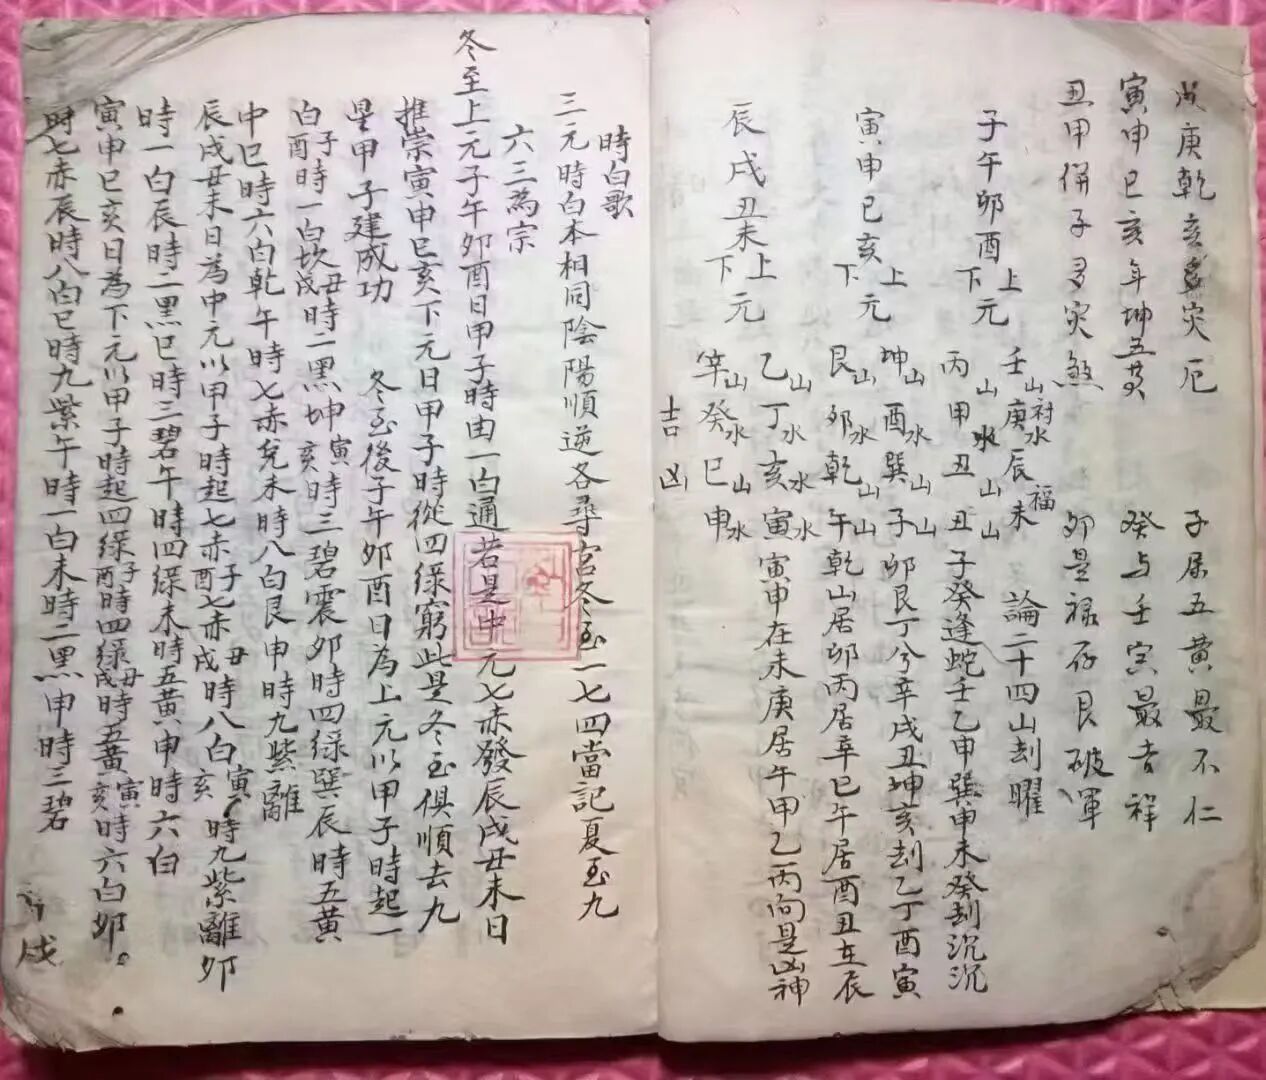 戌庚乾亥多災厄　子居五黃最不仁
寅申巳亥年坤五黃　癸與壬寅最吉祥
丑甲併子多災煞　卯是祿存艮破軍
論二十四山刦曜
子午卯酉上下元　壬山庚水辰山未山
丙山甲水丑山丑山
子癸逢蛇壬乙申巽申未癸刦沉沉
寅申巳亥上下元　坤山酉水巽山子山
卯艮丁兮辛戌丑坤亥刦乙丁酉寅
艮山卯水乾山午山
乾山居卯丙居辛巳午居酉丑在辰
辰戌丑未上下元　乙山丁水亥水寅水
寅申在未庚居午甲乙丙向是凶神
辛山癸水巳山申水
吉凶
時白歌
三元時白本相同陰陽順逆各尋宮冬至一七四當記夏至九
六三為宗
冬至上元子午卯酉日甲子時由一白通若是中元七赤發辰戌丑未日
推崇寅申巳亥下元日甲子時從四綠窮此是冬至俱順去九
星甲子建成功　冬至後子午卯酉日為上元以甲子時起一
白子酉時一白坎丑戌時二黑坤寅亥時三碧震卯時四綠巽辰時五黃
中巳時六白乾午時七赤兌未時八白艮申時九紫離
辰戌丑未日為中元以甲子時起七赤子酉七赤丑戌時八白寅亥時九紫離卯
時一白辰時二黑巳時三碧午時四綠未時五黃申時六白
寅申巳亥日為下元以甲子時起四綠子酉時四綠丑戌時五黃寅亥時六白卯
時七赤辰時八白巳時九紫午時一白未時二黑申時三碧
戌